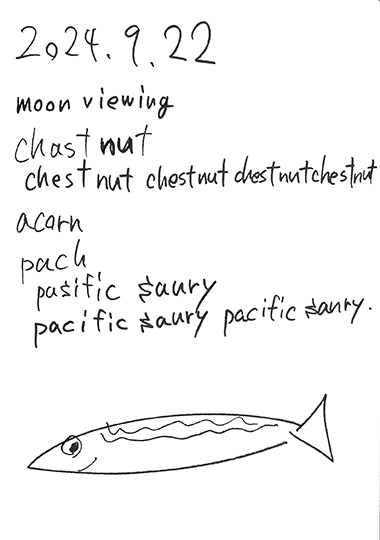 2024.9.22
moon viewing
chastnut
chestnut chestnut chestnut chestnut
acorn
pach
pasific saury
pacific saury pacific saury.